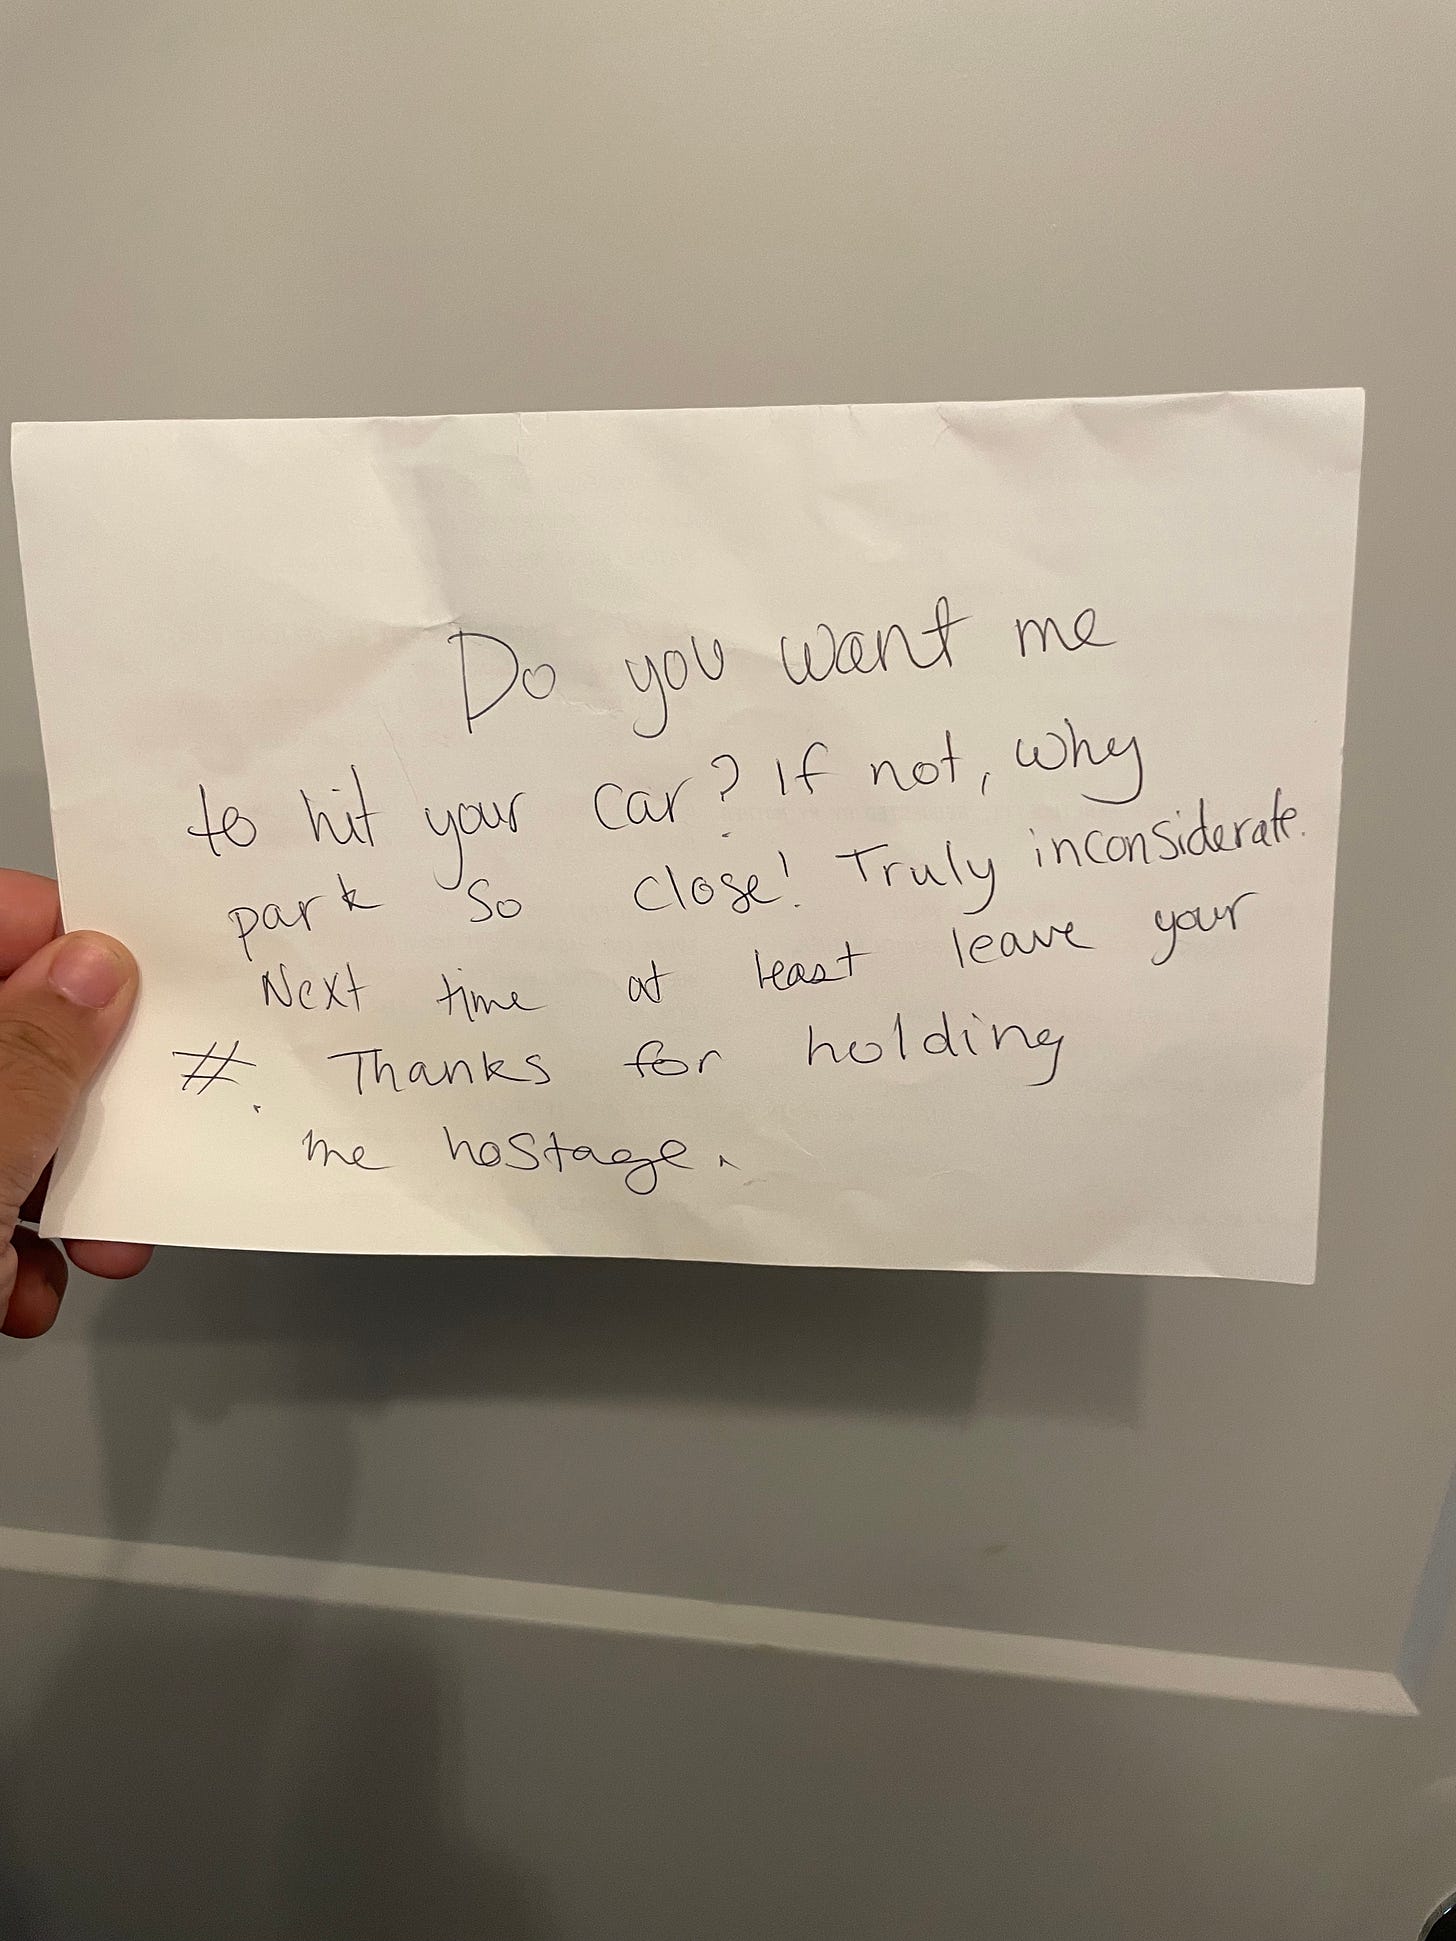 Do you want me
to hit your car? If not, why
park so close! Truly inconsiderate.
Next time at least leave your
#. Thanks for holding
me hostage.